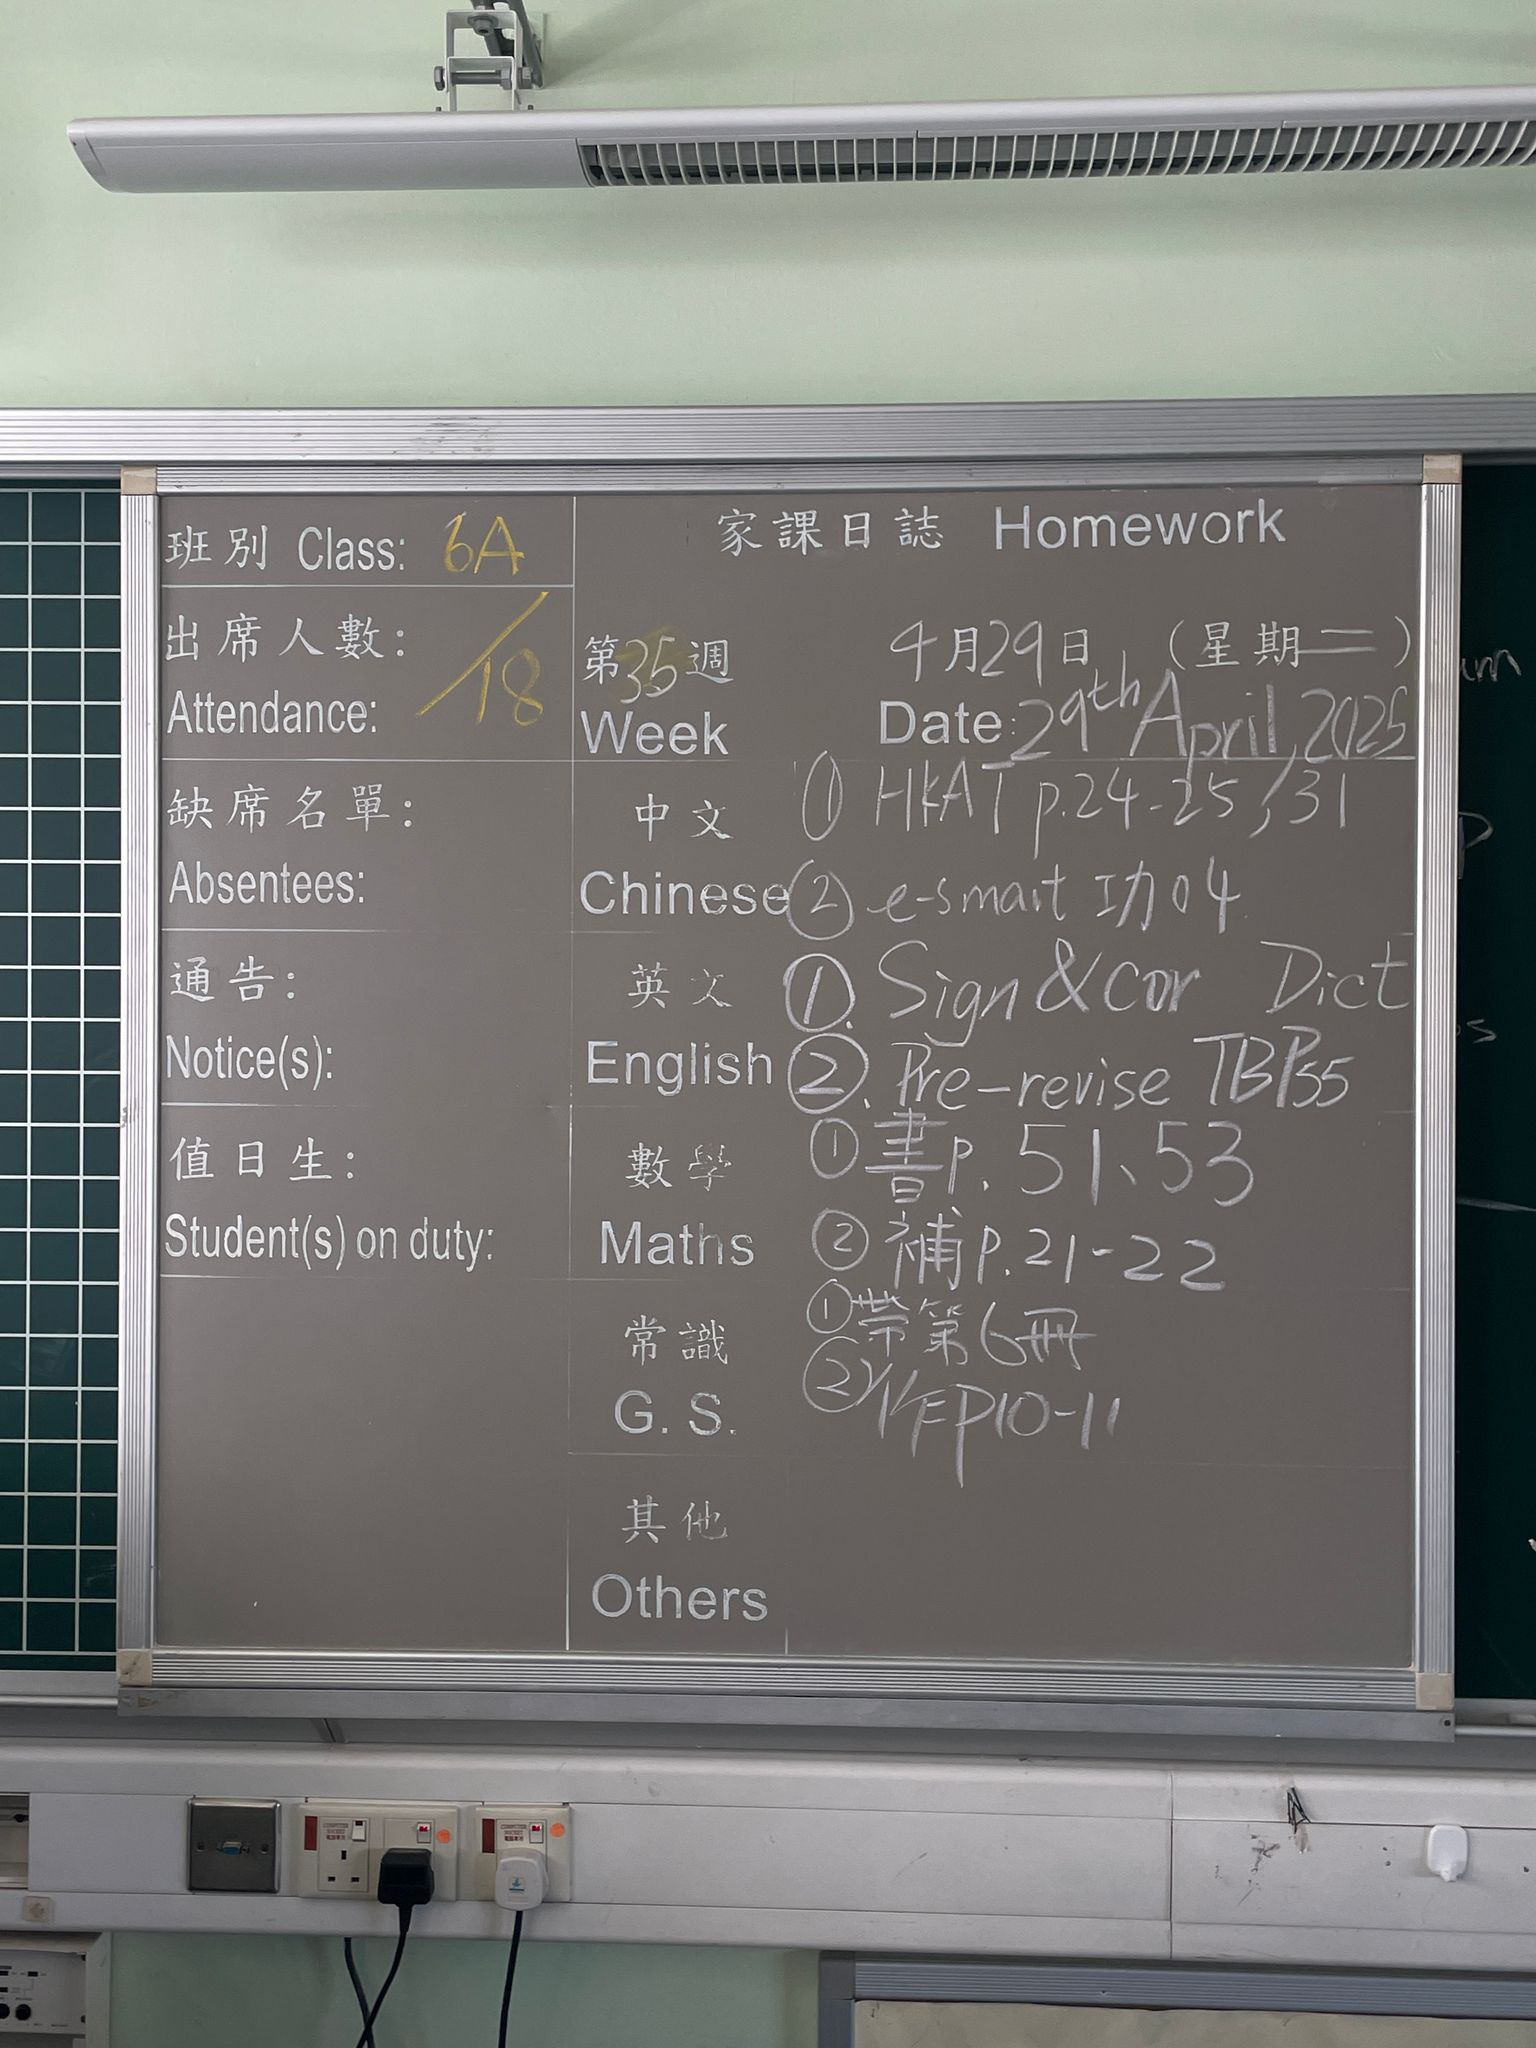 班別 Class: 6A
出席人數:
Attendance: /18
缺席名單:
Absentees:
通告:
Notice(s):
值日生:
Student(s) on duty:
家課日誌 Homework
第35週 4月29日 (星期二)
Week Date: 29th April, 2025
中文 ① HKAT p.24-25, 31
Chinese ② e-smart 功04
英文 ①. Sign & cor Dict
English ②. Pre-revise TBP55
數學 ① 書p. 51、53
Maths ② 補p. 21-22
常識 ① 帶第6冊
G. S. ② 作P10-11
其他
Others